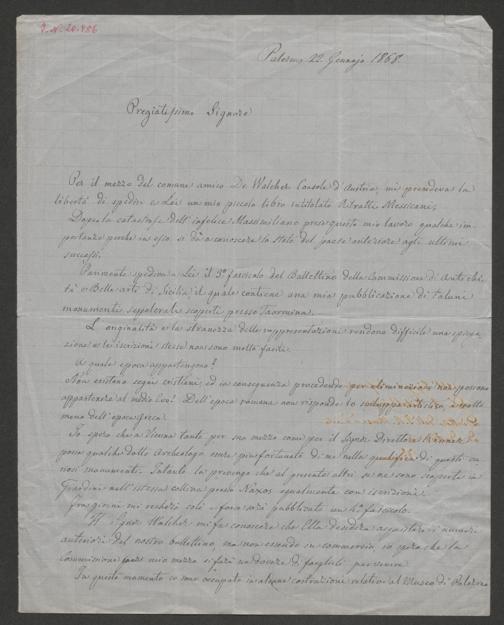 J. N. 20.486
Palermo 22. Gennajo 1868.
Pregiatissimo Signore
Per il mezzo del comune amico De Walcher Console d'Austria, mi prendeva la
libertà di spedire a Lei un mio piccolo libro intitolato Ritratti Messicani.
Dopo la catastrofe dell'infelice Massimiliano prese questo mio lavoro qualche im-
portanza perchè in esso si dà a conoscere lo stato del paese anteriore agli ultimi
successi.
Parimente spediva a Lei il 3º fascicolo del Bullettino della Commissione di Antichi-
tà e Belle arti di Sicilia il quale contiene una mia pubblicazione di taluni
monumenti sepolcrali scoperti presso Taormina.
L'originalità e la stranezza delle rappresentazioni rendono difficile una spiega-
zione e le iscrizioni stesse non sono molto facili.
A quale epoca appartengono?
Non esistono segni cristiani, ed in conseguenza procedendo per eliminazione non possono
appartenere al medio Evo! Dell'epoca romana non rispondono
meno dell'epoca greca.
Io spero che a Vienna tanto per suo mezzo come per il Signor Direttore
possa qualche dotto Archeologo essere più fortunato di me nella di questi cu-
riosi monumenti. Intanto la prevengo che al presente altri se ne sono scoperti in
Giardini nell'istessa collina presso Naxos egualmente con iscrizioni.
Fra giorni mi recherò colà e farò sarà pubblicato un 4º fascicolo.
Il Sigr Walcher mi fa conoscere che Ella desidera acquistare i numeri
anteriori del nostro bullettino, ma non essendo in commercio, io spero che la
Commissione per mio mezzo si farà un dovere di farglieli pervenire.
In questo momento io sono occupato in alcune costruzioni relative al Museo di Palermo